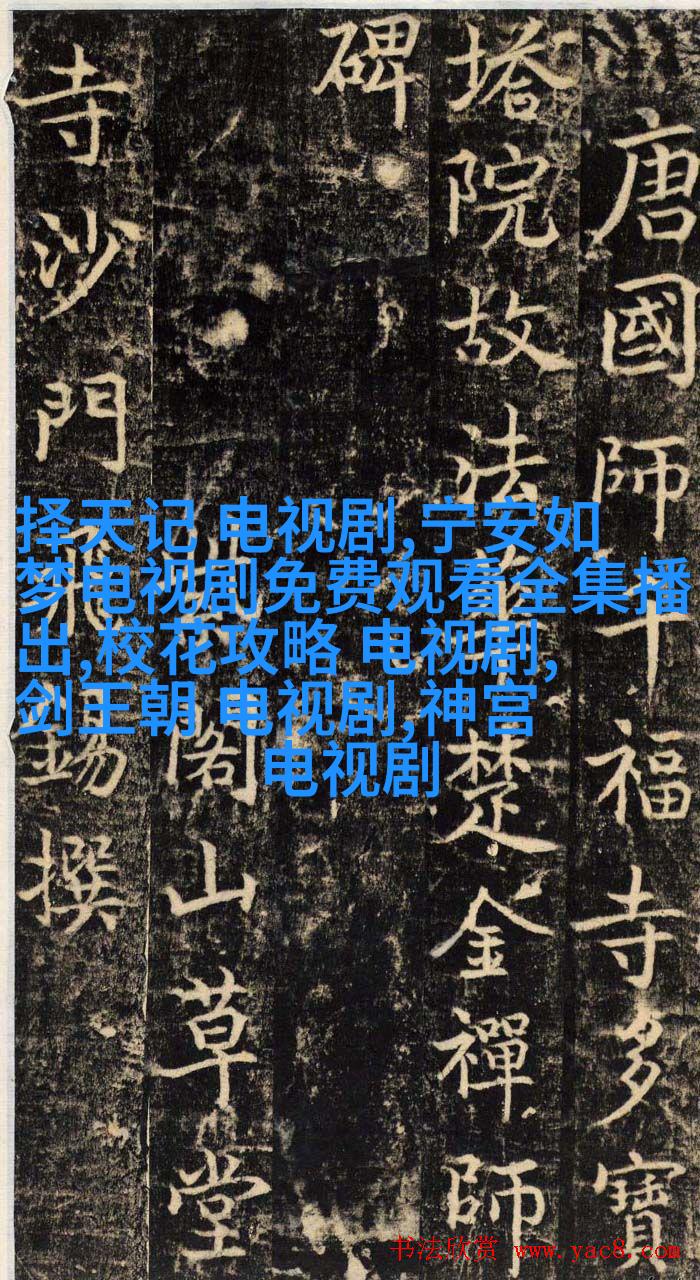 唐國師千福寺多寶
塔院故法華楚金禪師
碑
紫閣山草堂
寺沙門飛錫撰
择天记 电视剧,宁安如
梦电视剧免费观看全集播
出,校花攻略 电视剧,
剑王朝 电视剧,神宫
电视剧
书法欣赏 www.yac8.com